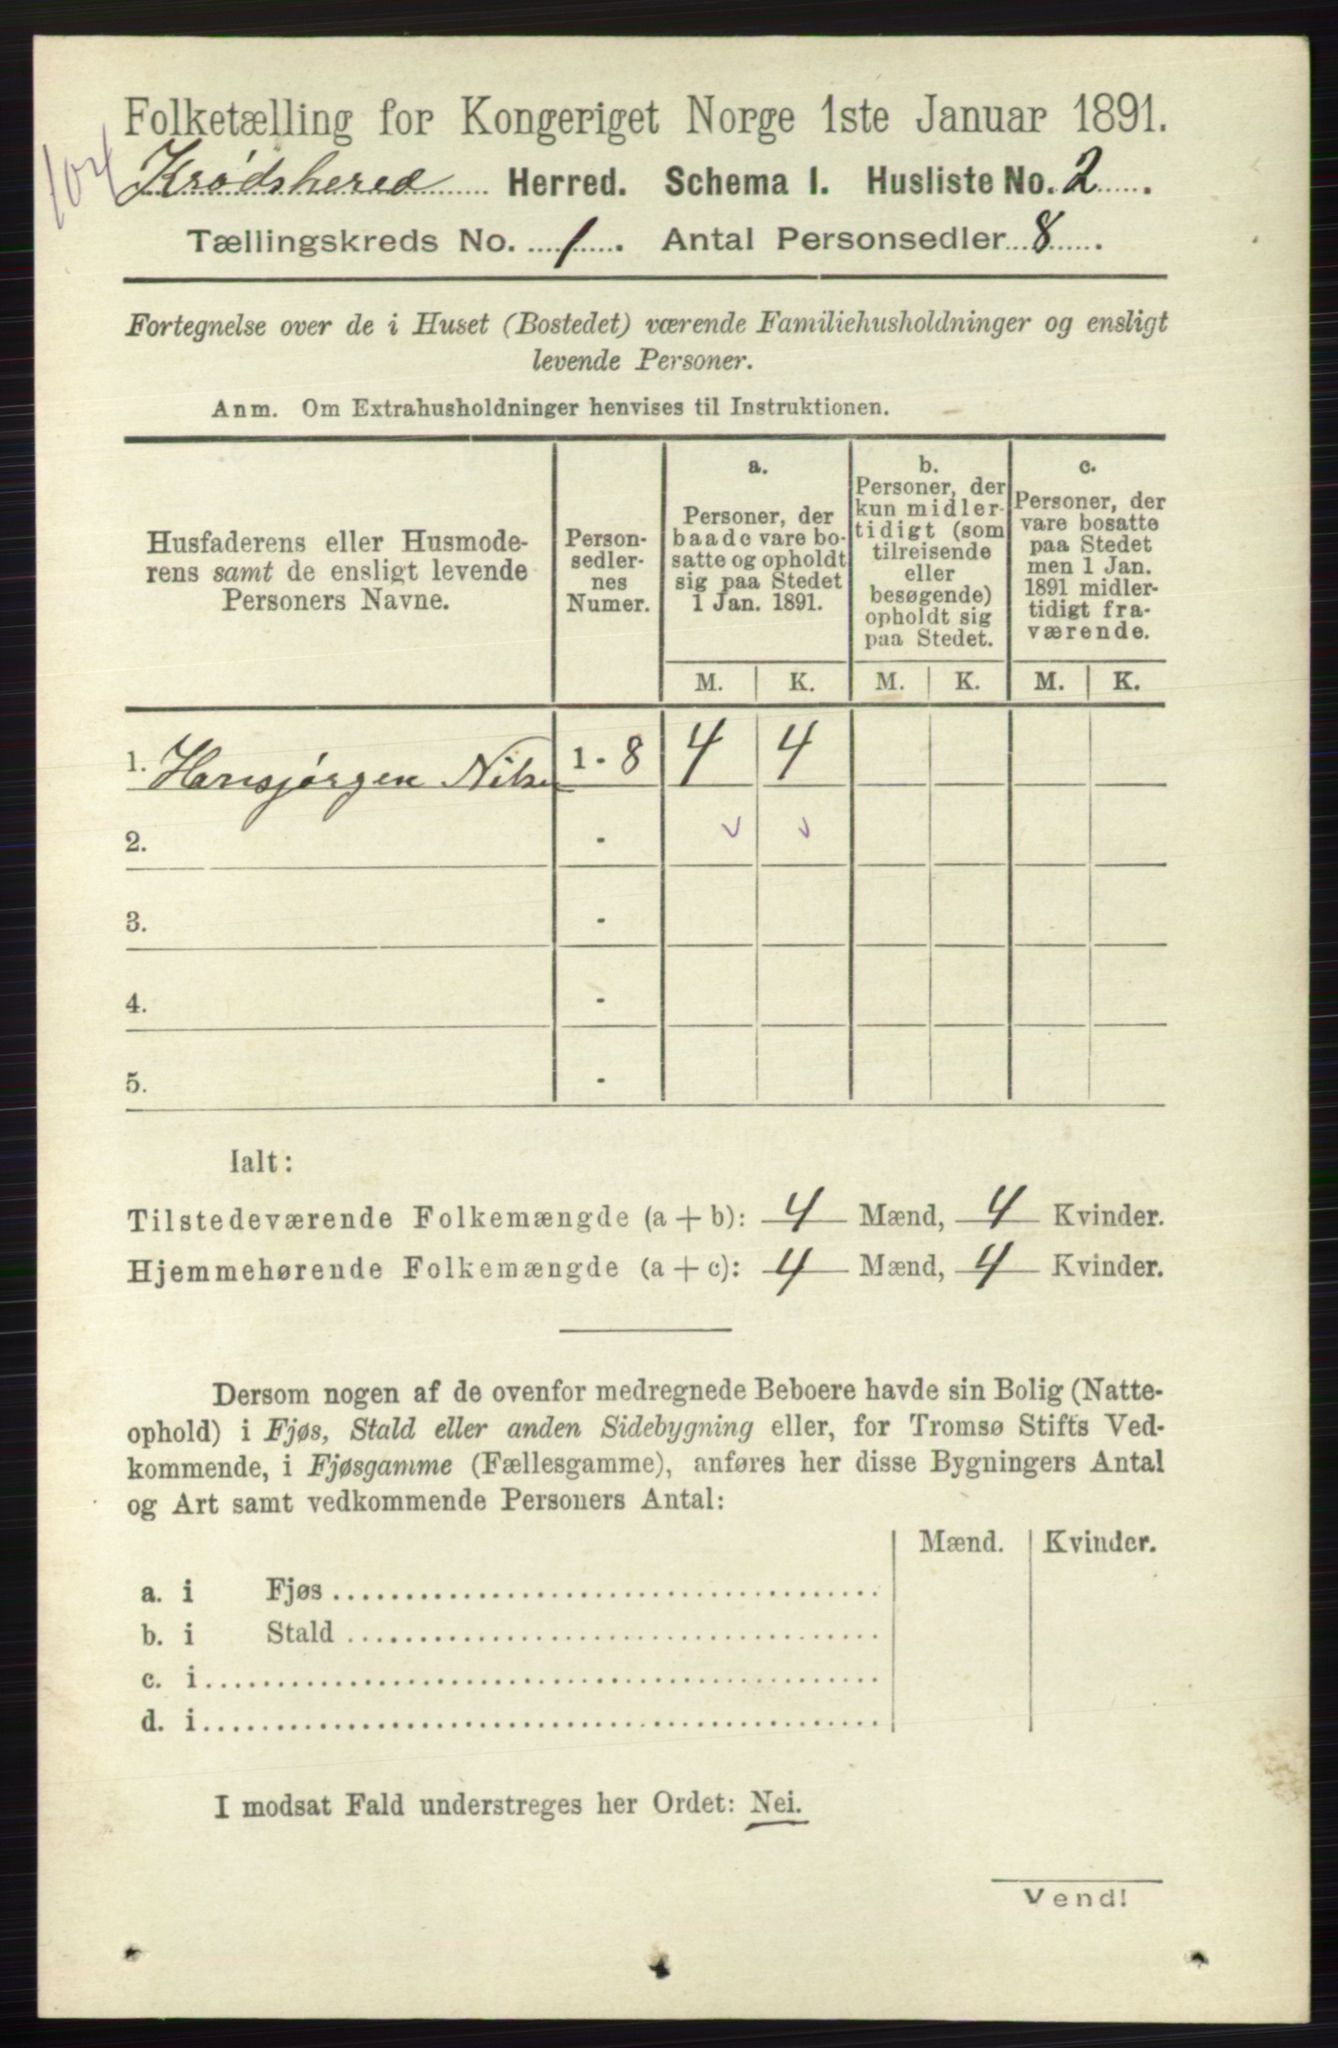 Folketælling for Kongeriget Norge 1ste Januar 1891.
104
Krødshered Herred. Schema 1. Husliste No. 2
Tællingskreds No. 1. Antal Personsedler 8
Fortegnelse over de i Huset (Bostedet) værende Familiehusholdninger og ensligt
levende Personer.
Anm. Om Extrahusholdninger henvises til Instruktionen.
Husfaderens eller Husmode-
rens samt de ensligt levende
Personers Navne.
Person-
sedler-
nes
Numer.
a.
Personer, der
baade vare bo-
satte og opholdt
sig paa Stedet
1 Jan. 1891.
b.
Personer, der
kun midler-
tidigt (som
tilreisende
eller
besøgende)
opholdt sig
paa Stedet.
c.
Personer, der
vare bosatte
paa Stedet
men 1 Jan.
1891 midler-
tidigt fra-
værende.
M. K. M. K. M. K.
1. Hansjørgen Nilsen 1 - 8 4 4
2. -
3. -
4. -
5. -
Ialt:
Tilstedeværende Folkemængde (a + b): 4 Mænd, 4 Kvinder.
Hjemmehørende Folkemængde (a + c): 4 Mænd, 4 Kvinder.
Dersom nogen af de ovenfor medregnede Beboere havde sin Bolig (Natte-
ophold) i Fjøs, Stald eller anden Sidebygning eller, for Tromsø Stifts Ved-
kommende, i Fjøsgamme (Fællesgamme), anføres her disse Bygningers Antal
og Art samt vedkommende Personers Antal:
Mænd. Kvinder.
a. i Fjøs
b. i Stald
c. i
d. i
I modsat Fald understreges her Ordet: Nei.
Vend!